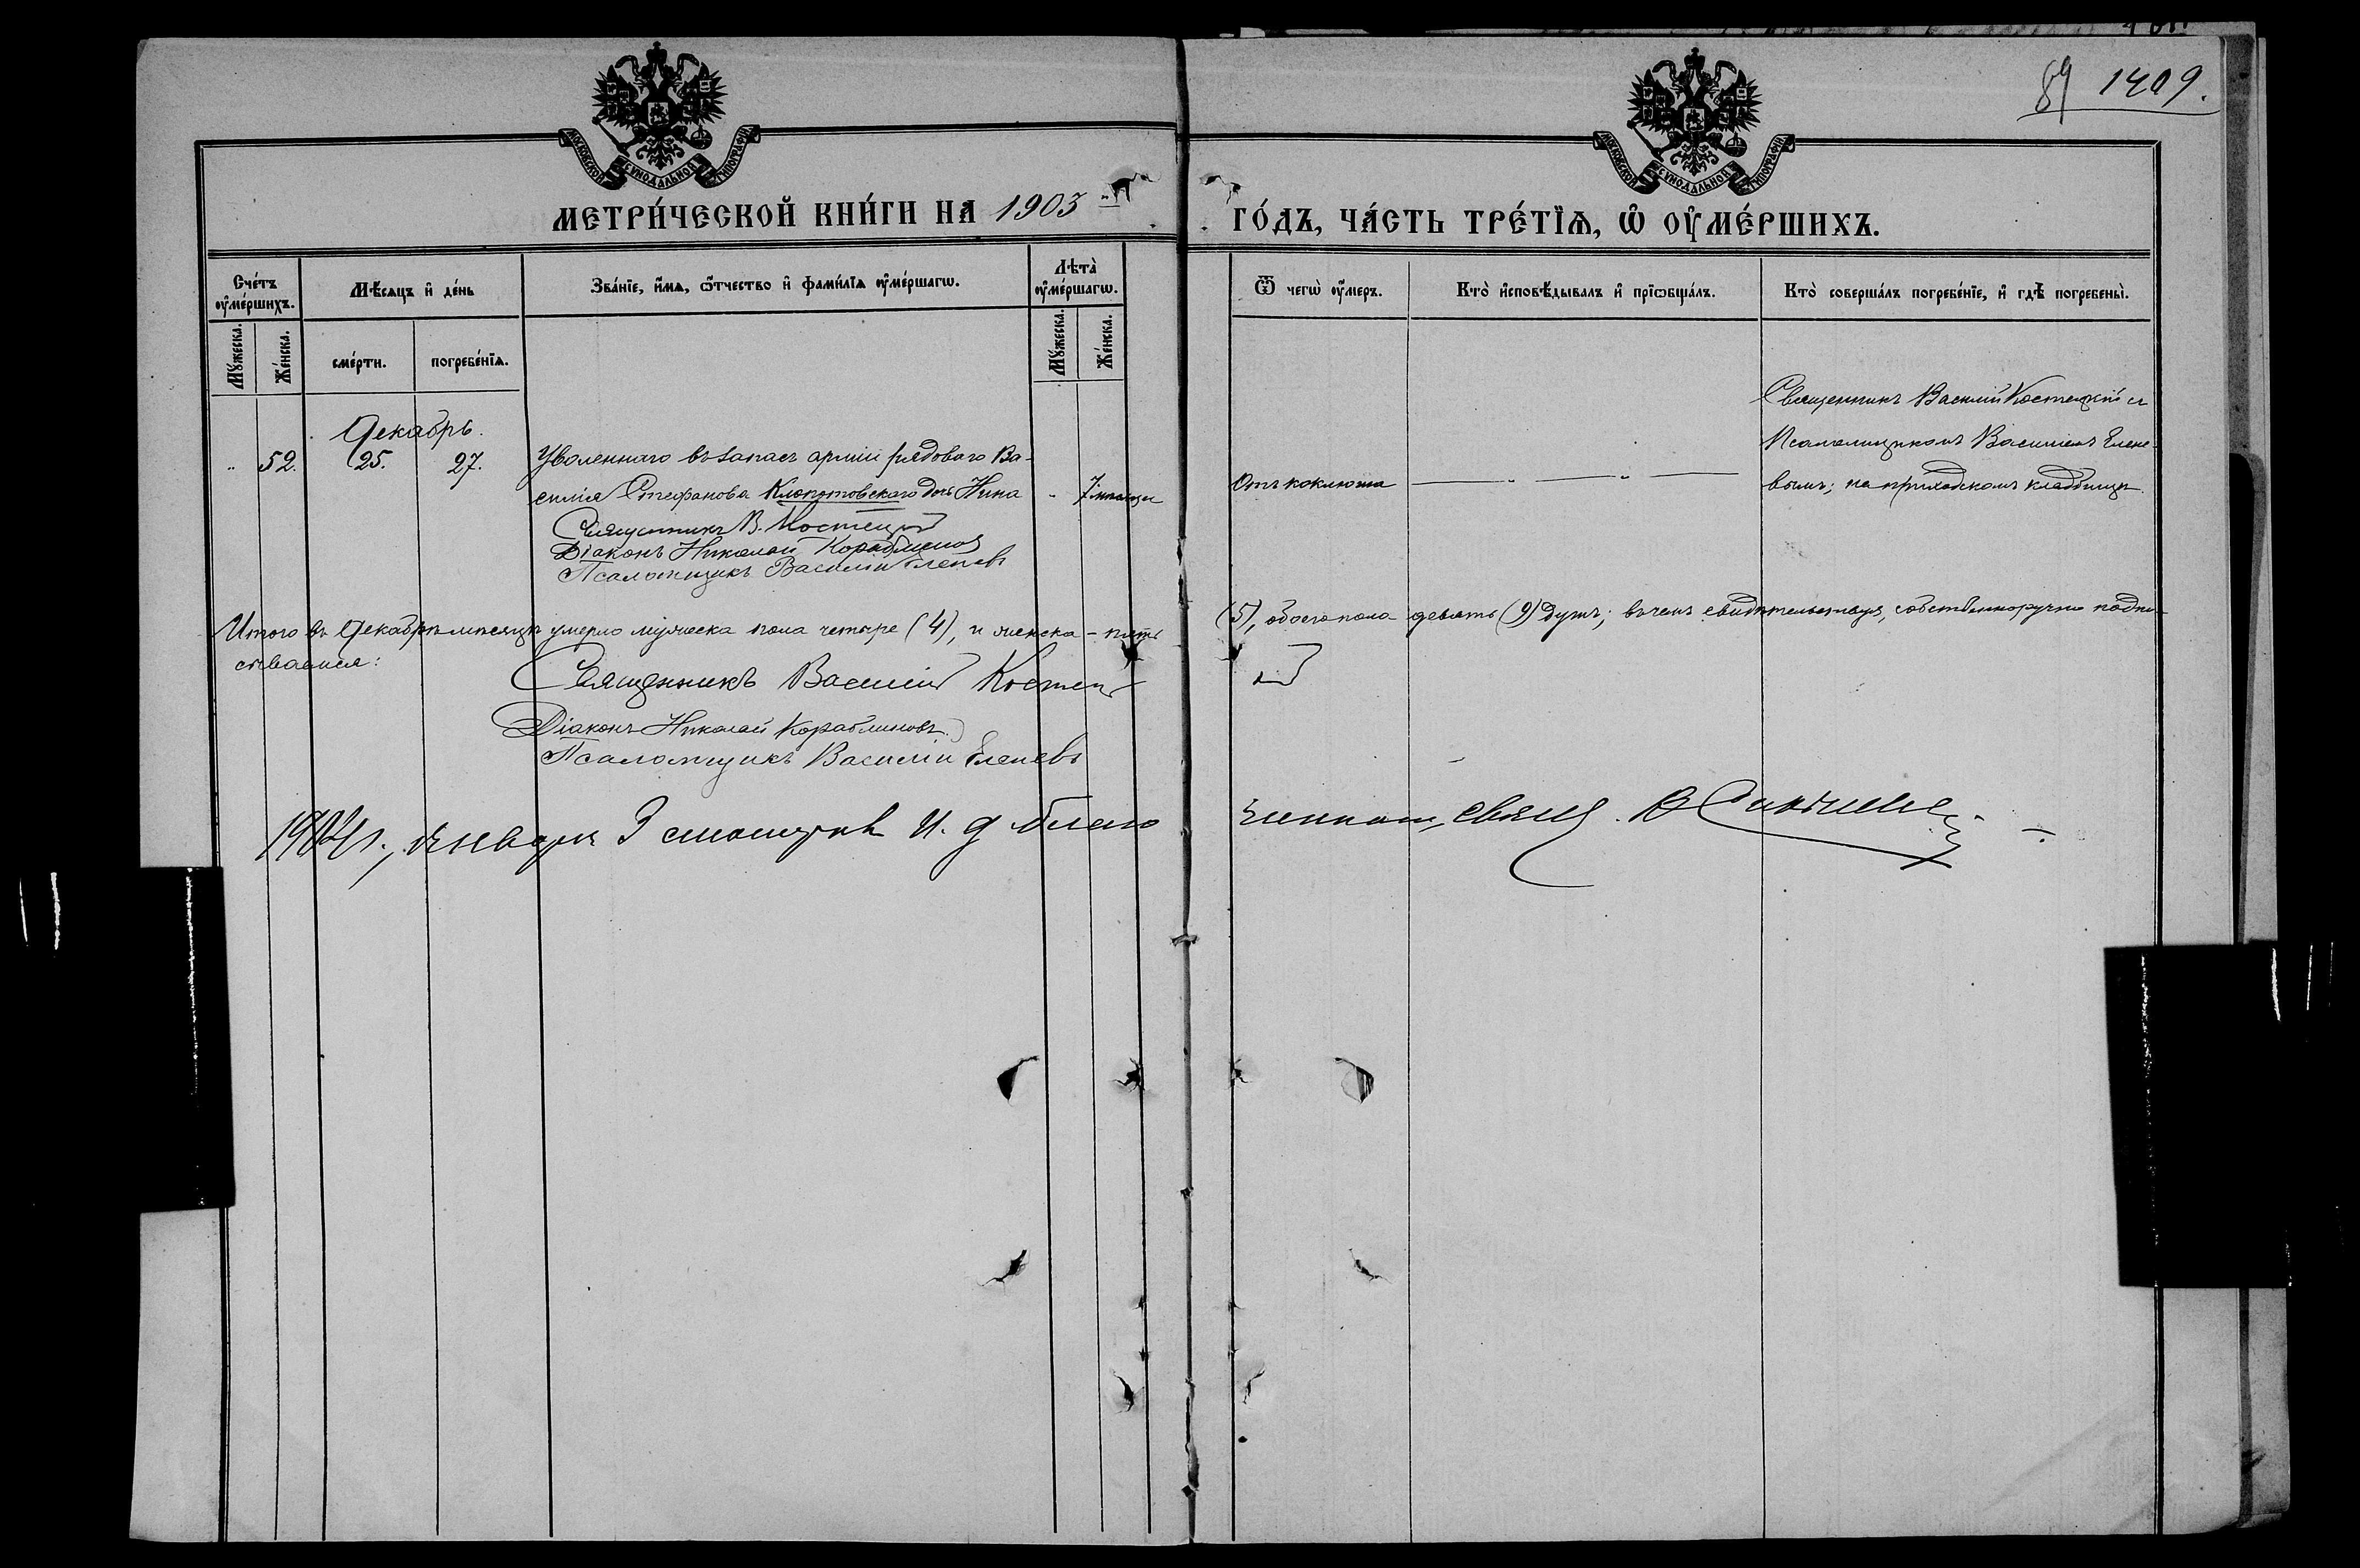 89 1409.
МОСКОВСКОЙ СѴНОДАЛЬНОЙ ТИПОГРАФІИ
МОСКОВСКОЙ СѴНОДАЛЬНОЙ ТИПОГРАФІИ
МЕТРИ́ЧЕСКОЙ КНИ́ГИ НА 1903
ГО́ДЪ, ЧА́СТЬ ТРЕ́ТЇѦ, Ѡ҆ ОУ҆МЕ́РШИХЪ.
Сче́тъ оу҆ме́ршихъ.
Мꙋ́жеска.
Же́нска.
Мѣ́сѧцъ и҆ де́нь
сме́рти.
погребе́нїѧ.
Зва́нїе, и҆́мѧ, ѻ҆́тчество и҆ фами́лїѧ оу҆ме́ршагѡ.
Лѣта̀ оу҆ме́ршагѡ.
Мꙋ́жеска.
Же́нска.
Ѿ чегѡ̀ оу҆́меръ.
Кто̀ и҆сповѣ́дывалъ и҆ прїѡбща́лъ.
Кто̀ соверша́лъ погребе́нїе, и҆ гдѣ̀ погребены̀.
Декабрь.
" 52. 25. 27.
Уволеннаго въ запасъ арміи рядового Ва-
силія Стефанова Клопотовскаго дочь Нина
" 7 мѣсяцевъ
Отъ коклюша
Священникъ Василій Костецкій съ
Псаломщикомъ Василіемъ Елене-
вымъ; на приходскомъ кладбищѣ.
Священникъ В. Костецкій
Діаконъ Николай Кораблиновъ
Псаломщикъ Василій Еленевъ
Итого въ Декабрѣ мѣсяцѣ умерло мужеска пола четыре (4), и женска - пять (5), обоего пола девять (9) душъ; въ чемъ свидѣтельствуя, собственноручно подпи-
сываемся:
Священникъ Василій Костецкій
Діаконъ Николай Кораблиновъ.
Псаломщикъ Василій Еленевъ
1904 г., Января 3 смотрѣлъ И. д. Благочиннаго, свящ.